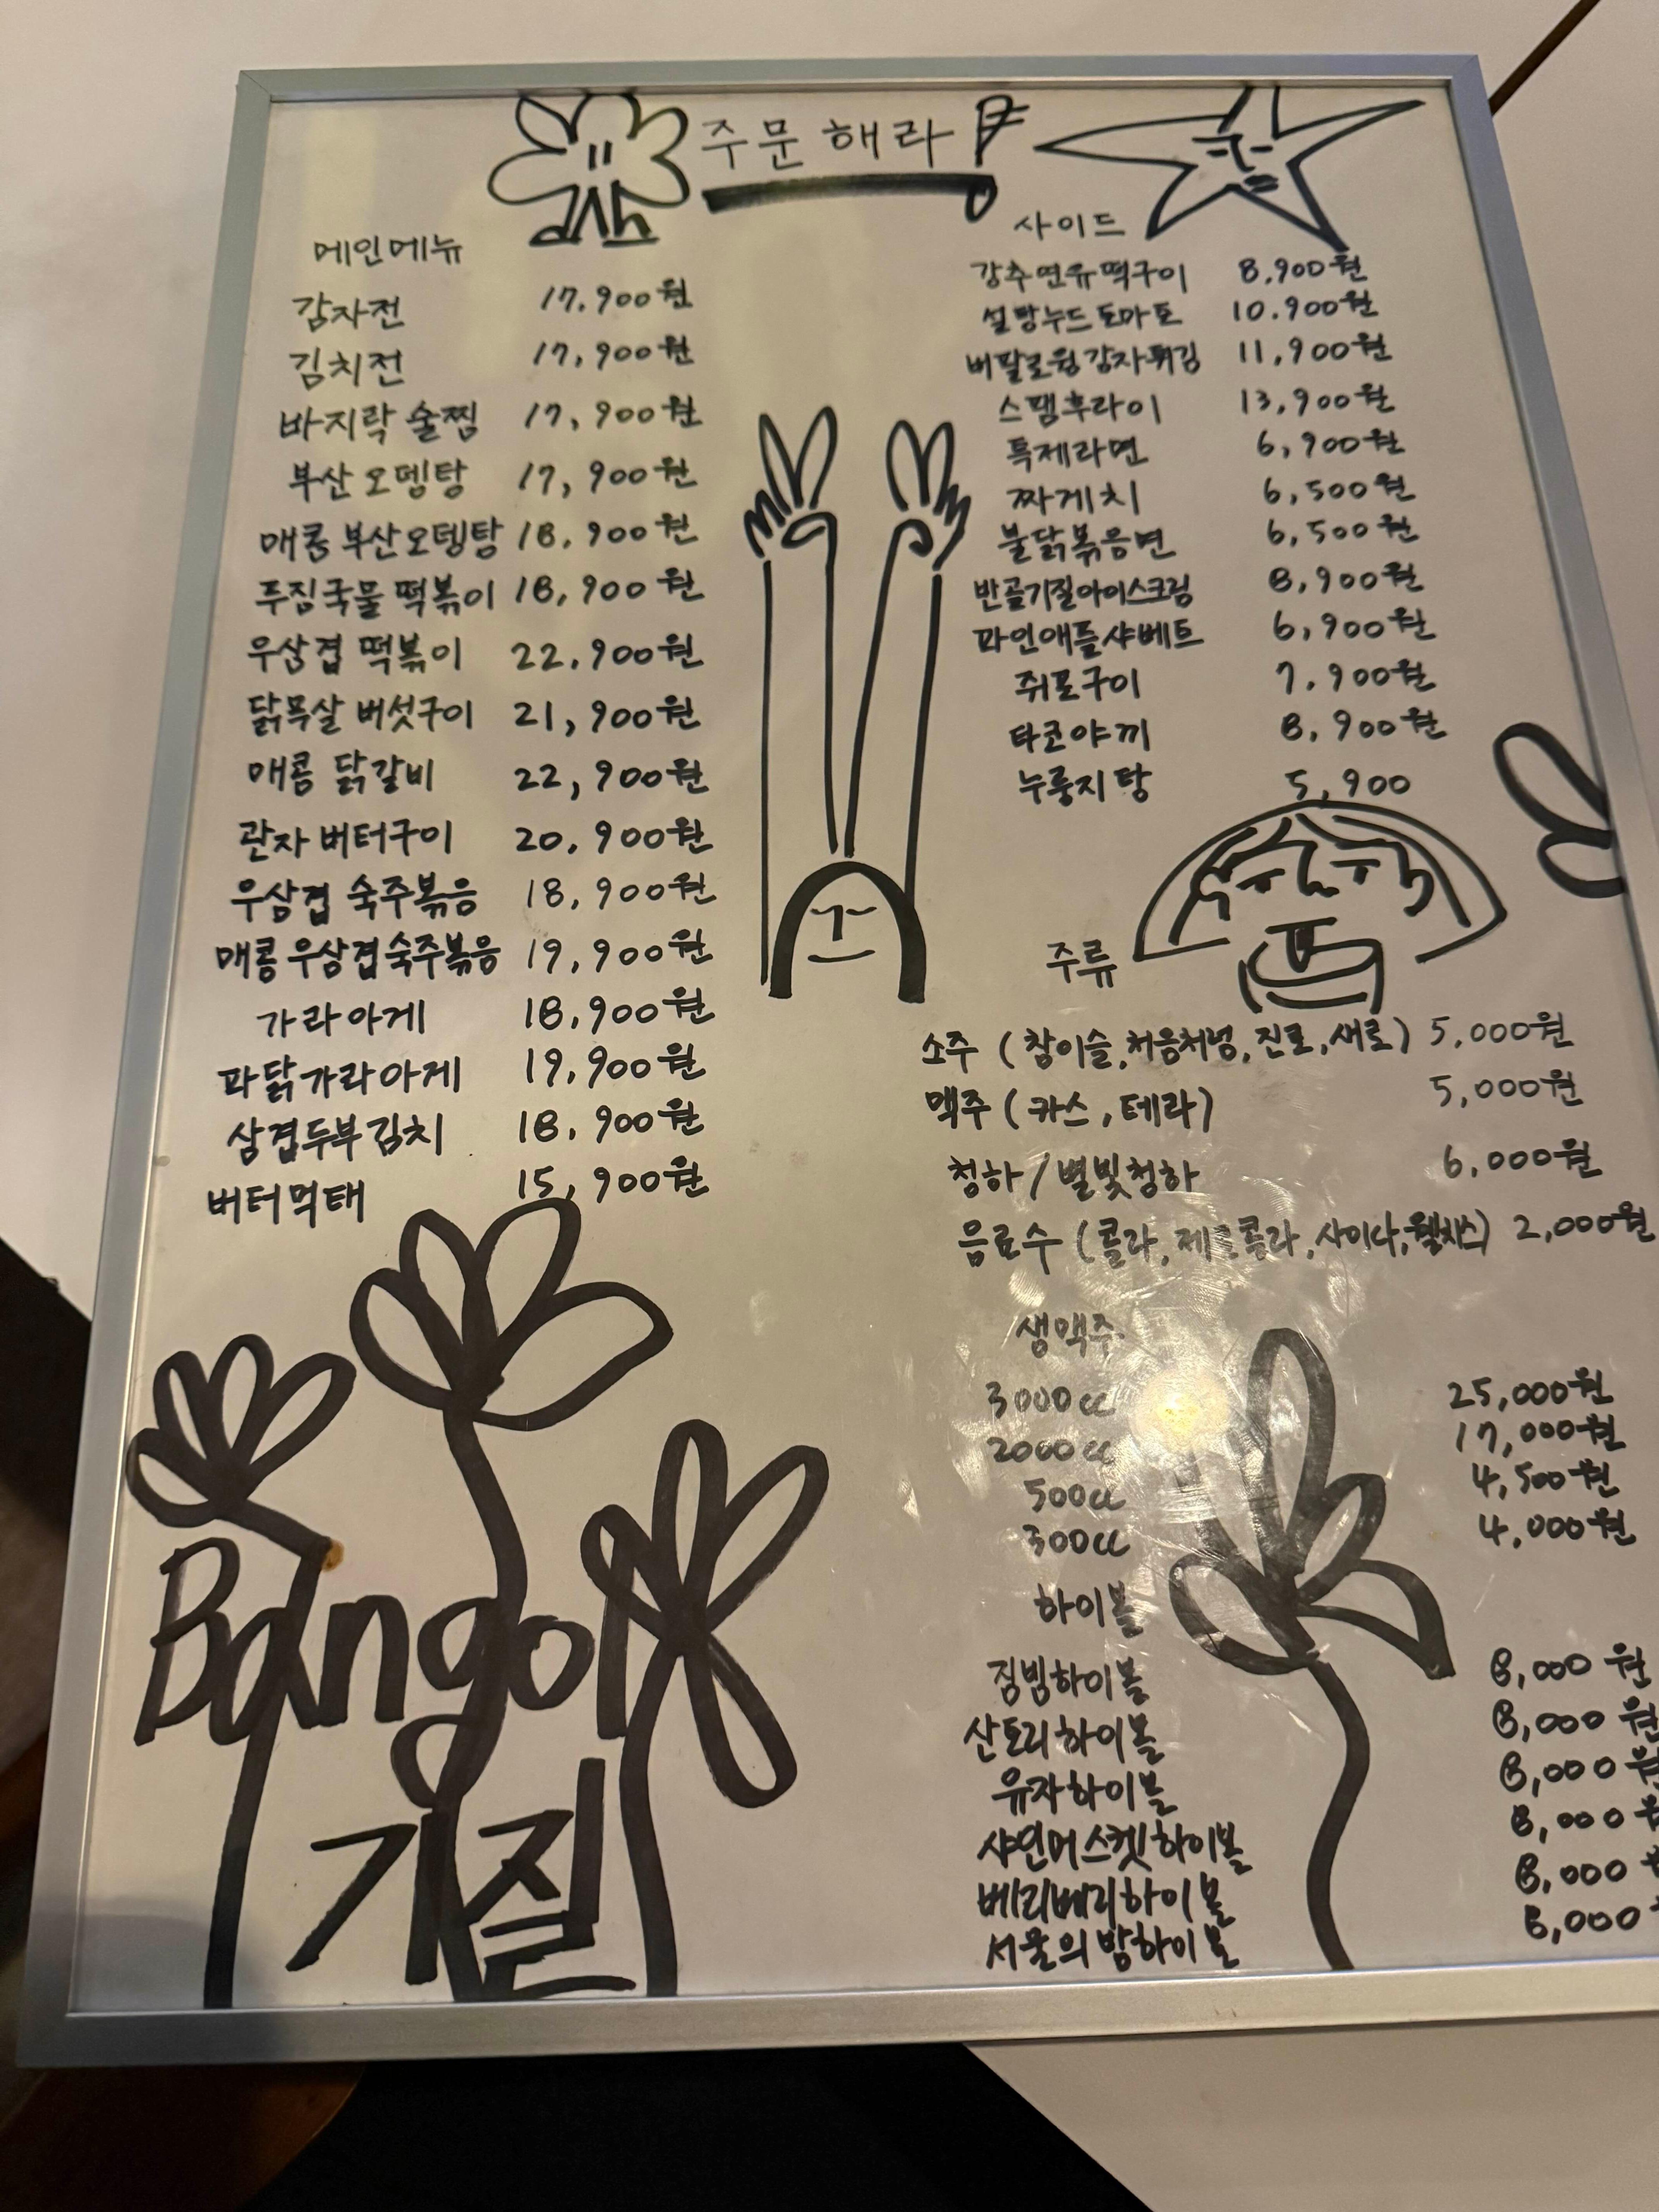 주문해라!
메인메뉴
감자전 17,900원
김치전 17,900원
바지락 술찜 17,900원
부산 오뎅탕 17,900원
매콤 부산오뎅탕 18,900원
푸짐국물 떡볶이 18,900원
우삼겹 떡볶이 22,900원
닭목살 버섯구이 21,900원
매콤 닭갈비 22,900원
관자 버터구이 20,900원
우삼겹 숙주볶음 18,900원
매콤우삼겹숙주볶음 19,900원
가라아게 18,900원
파닭가라아게 19,900원
삼겹두부김치 18,900원
버터먹태 15,900원
Bangol
기질
사이드
강추연유떡구이 8,900원
설탕누드토마토 10,900원
버팔로윙감자튀김 11,900원
스팸후라이 13,900원
특제라면 6,900원
짜게치 6,500원
불닭볶음면 6,500원
반골기질아이스크림 8,900원
파인애플샤베트 6,900원
쥐포구이 7,900원
타코야끼 8,900원
누룽지탕 5,900
주류
소주 (참이슬,처음처럼,진로,새로) 5,000원
맥주 (카스,테라) 5,000원
청하/별빛청하 6,000원
음료수 (콜라,제로콜라,사이다,웰치스) 2,000원
생맥주
3000cc 25,000원
2000cc 17,000원
500cc 4,500원
300cc 4,000원
하이볼
짐빔하이볼 8,000원
산토리하이볼 8,000원
유자하이볼 8,000원
샤인머스켓하이볼 8,000원
베리베리하이볼 8,000
서울의밤하이볼 8,000